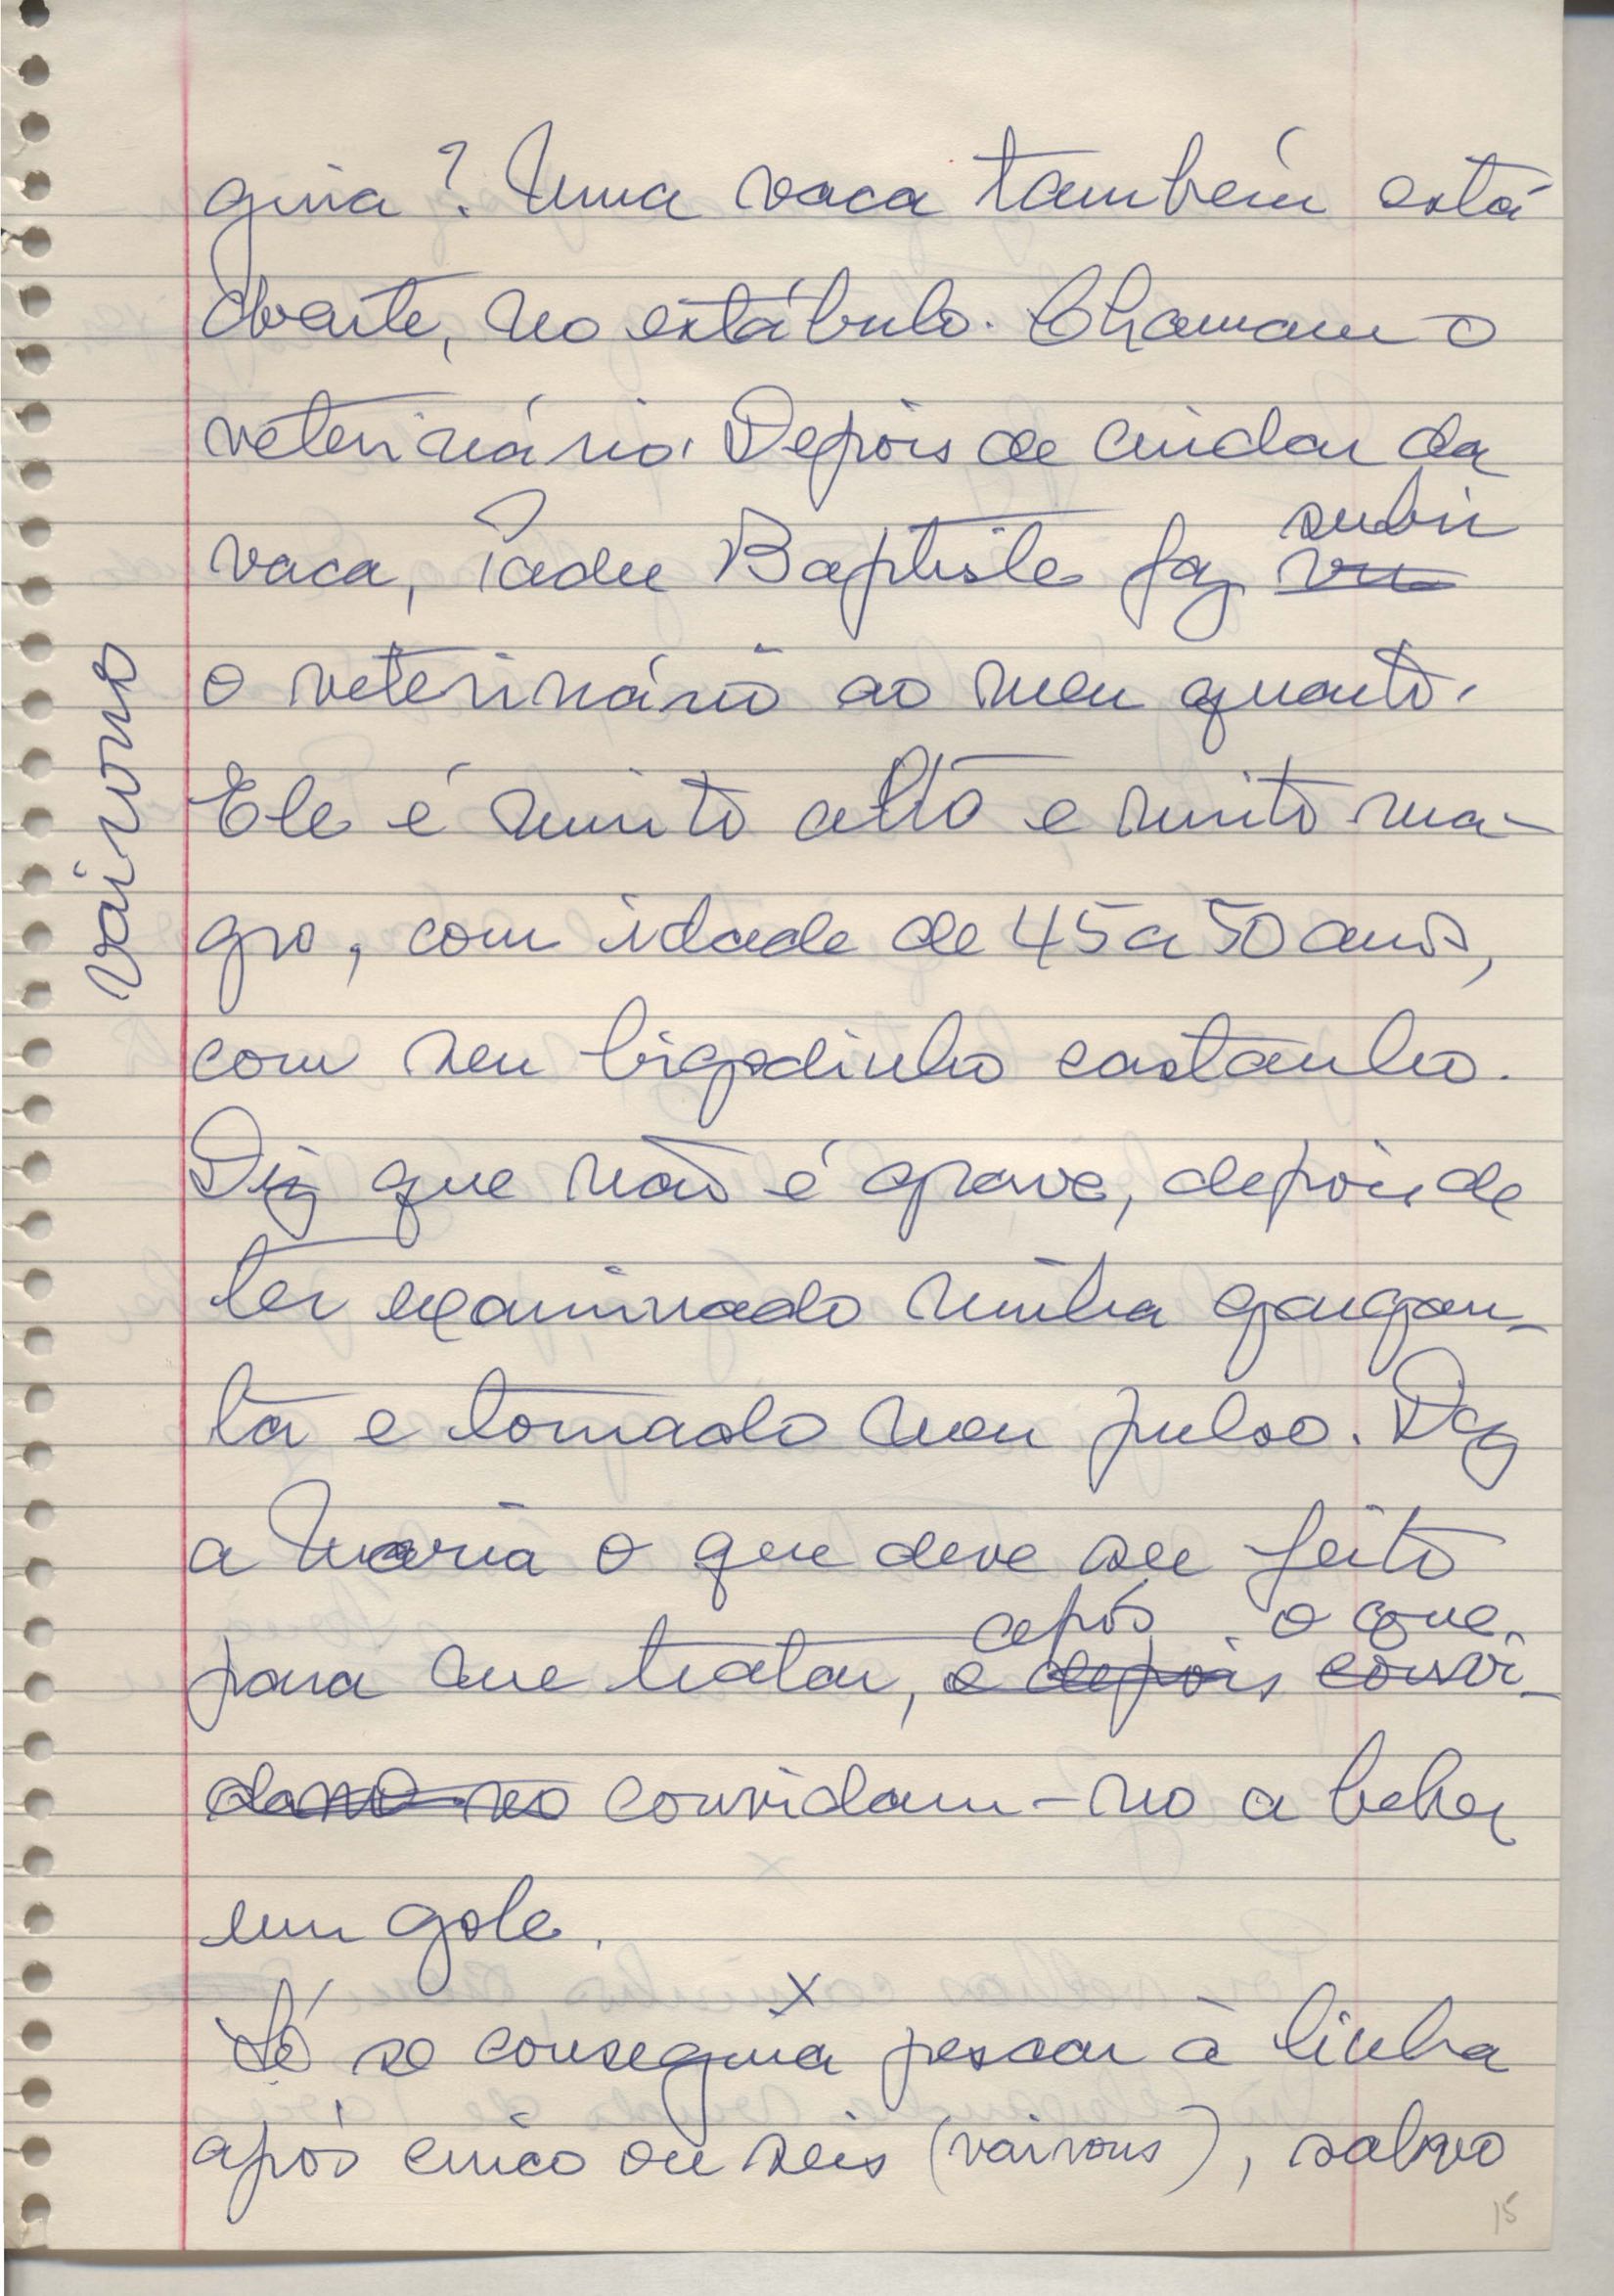 gina? Uma vaca também está
doente, no estábulo. Chamam o
veterinário. Depois de cuidar da
vaca, Tadeu Baptiste faz subir
o veterinário ao meu quarto.
Ele é muito alto e muito ma-
gro, com idade de 45 a 50 anos,
com seu bigodinho castanho.
Diz que não é grave, depois de
ter examinado minha gargan-
ta e tomado meu pulso. Diz
a Maria o que deve ser feito
para me tratar, após o que,
e depois convi-
dam-no convidam-no a beber
um gole.
x
Só se conseguia pescar à linha
após cinco ou seis (vairons), salvo
15
vairono